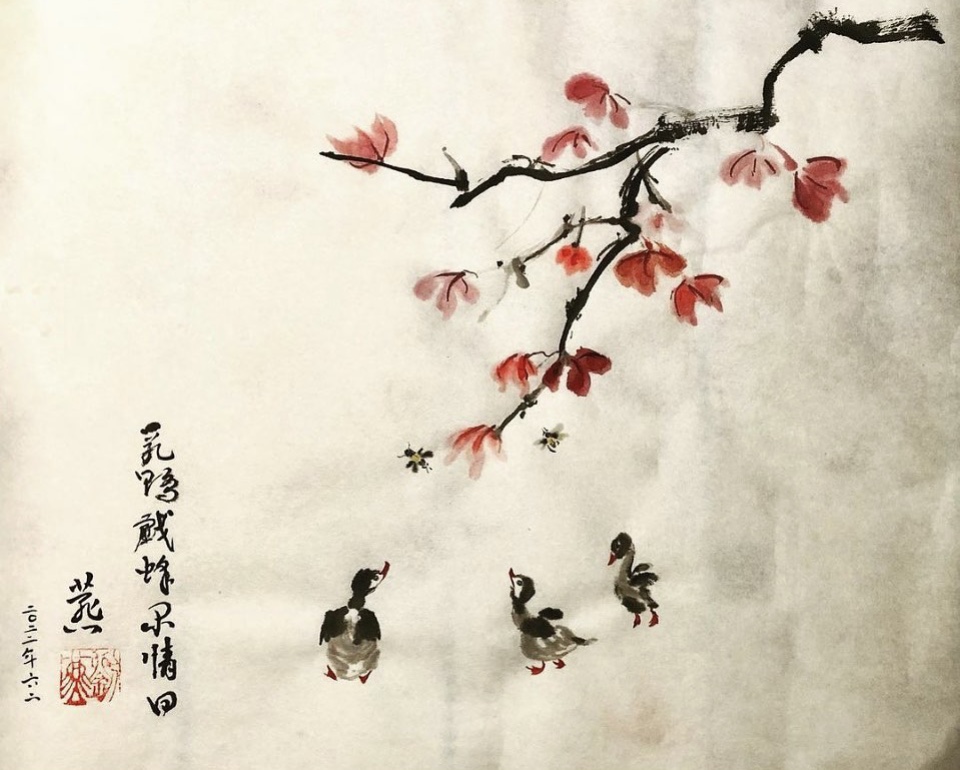 乳鴨戲蜂情田
燕
二〇二二年六.二